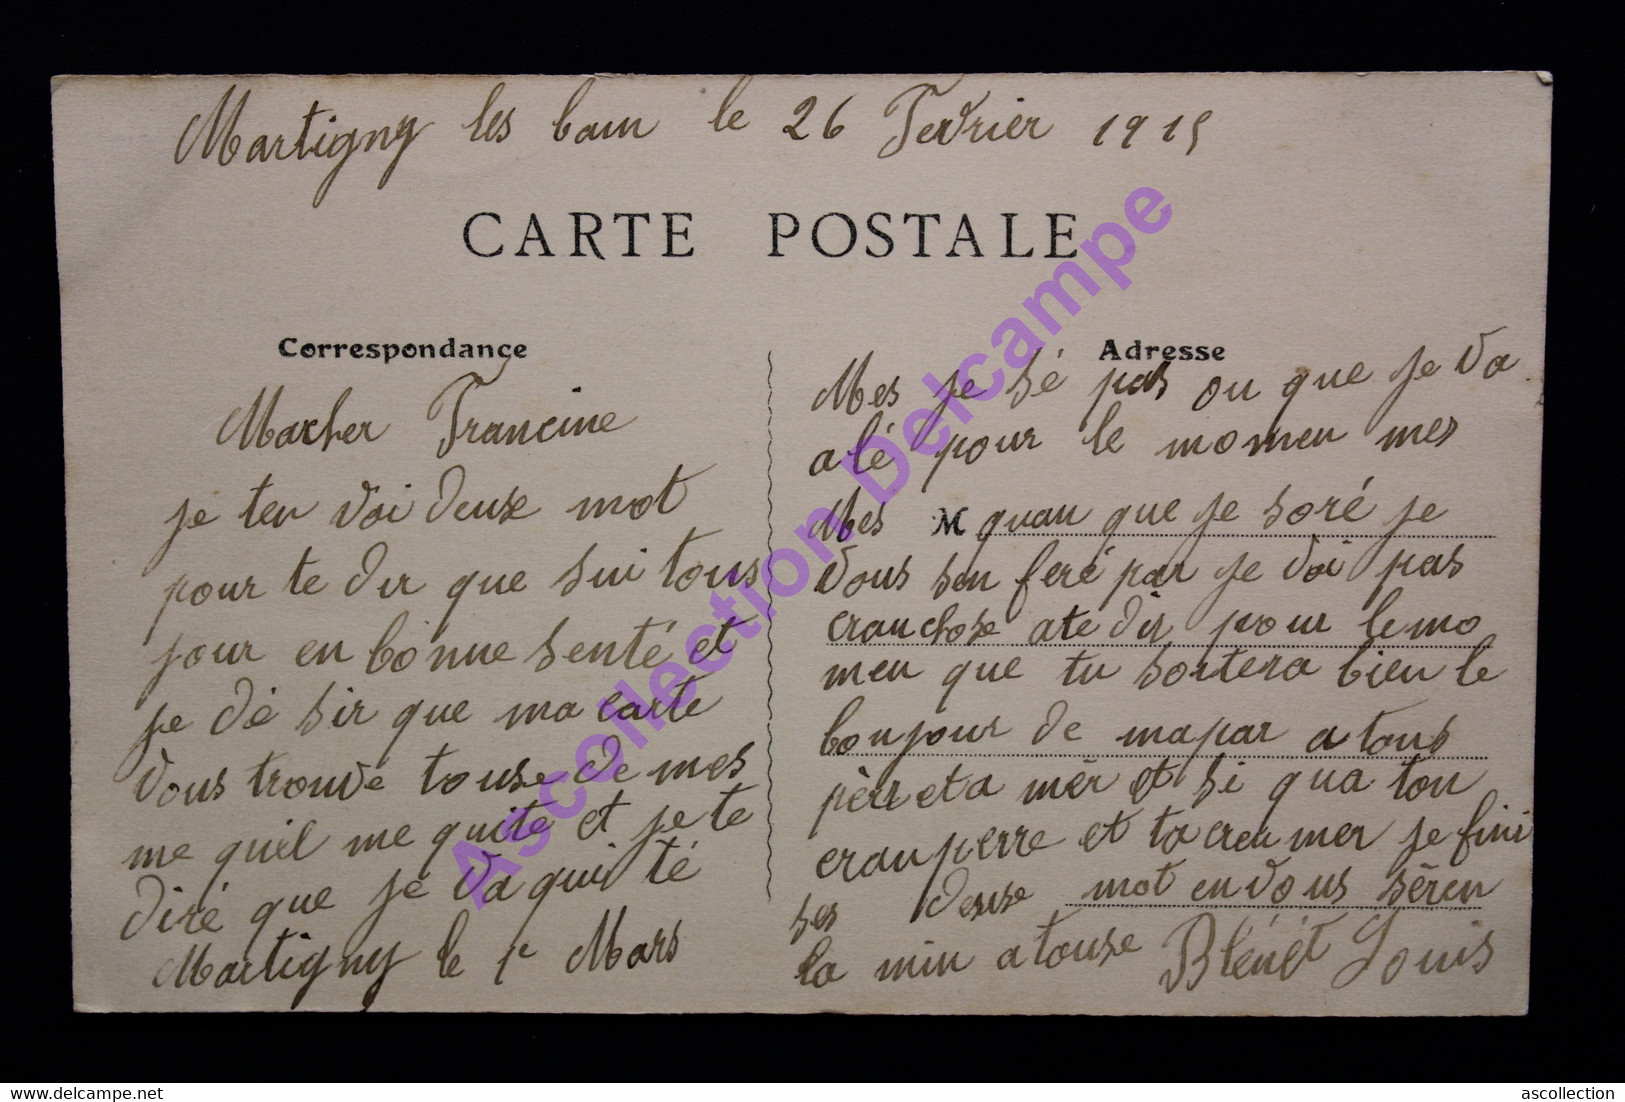 Martigny les bain le 26 Fevrier 1915
CARTE POSTALE
Correspondance
Macher Francine
je ten voi deux mot
pour te dir que sui tous
jour en bonne senté et
je dé sir que ma carte
vous trouve touse de mes
me quil me quite et je te
diré que je va quité
Martigny le 1r Mars
Adresse
Mes je sé pas ou que je va
alé pour le momen mes
Mes M quan que je soré je
vous sen feré par je voi pas
cranchose ate dir pour lemo
men que tu sortera bien le
bonjour de mapar a tous
pèr et a mèr et si qua ton
cranperre et ta cran mer je fini
ses deuse mot en vous sèren
la min a touse Blénét Louis
Ascollection Delcampe
ascollection